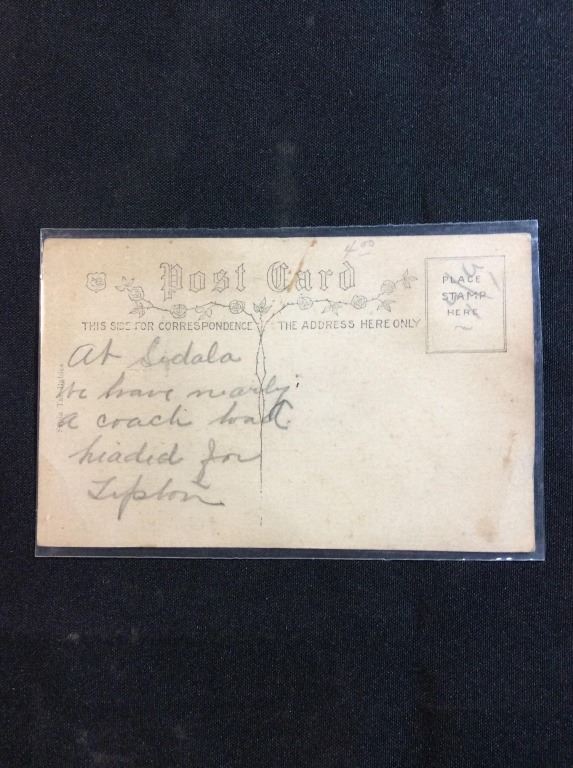 4.00
Post Card
PLACE
STAMP
HERE
THIS SIDE FOR CORRESPONDENCE
THE ADDRESS HERE ONLY
At Sidala
We have nearly
a coach load
headed for
Tipton